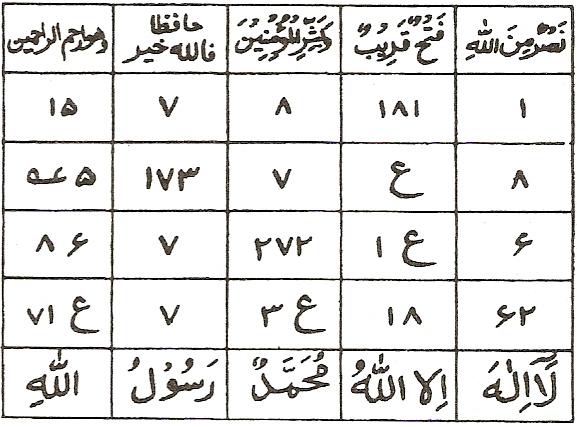 نَصْرٌ مِنَ اللهِ فَتْحٌ قَرِيبٌ وَبَشِّرِ الْمُؤْمِنِينَ فالله خير حافظا وهو ارحم الراحمين
۱ ۱۸۱ ۸ ۷ ۱۵
۸ ع ۷ ۱۷۳ ۵
۶ ع ۱ ۲۷۲ ۷ ۶ ۸
۶۲ ۱۸ ع ۳ ۷ ع ۷۱
لَآ اِلٰهَ اِلا اللهُ مُحَمَّدٌ رَسُوْلُ اللهِ